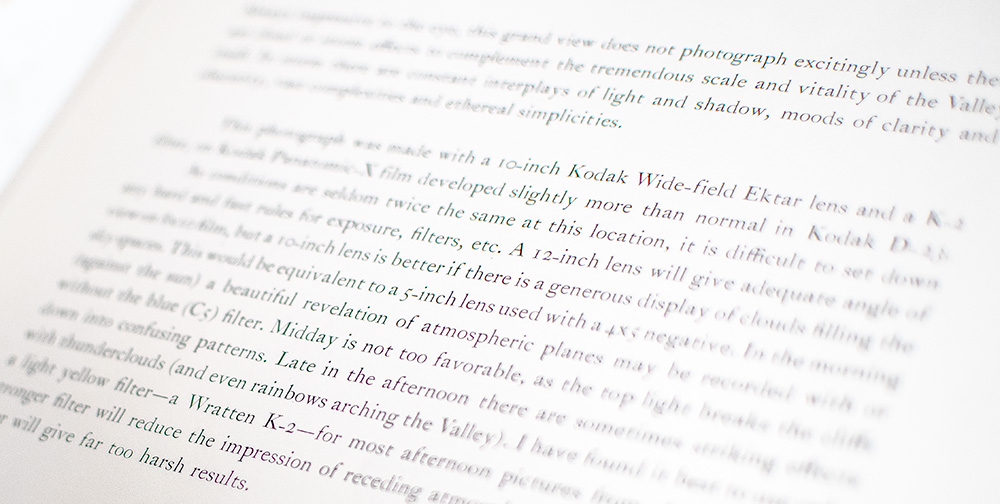 this grand view does not photograph excitingly unless the
to complement the tremendous scale and vitality of the Valley
there are constant interplays of light and shadow, moods of clarity and
complexities and ethereal simplicities.
This photograph was made with a 10-inch Kodak Wide-field Ektar lens and a K-2
Kodak Panatomic-X film developed slightly more than normal in Kodak D-23.
As conditions are seldom twice the same at this location, it is difficult to set down
any hard and fast rules for exposure, filters, etc. A 12-inch lens will give adequate angle of
view on film, but a 10-inch lens is better if there is a generous display of clouds filling the
sky spaces. This would be equivalent to a 5-inch lens used with a 4x5 negative. In the morning
(against the sun) a beautiful revelation of atmospheric planes may be recorded with or
without the blue (C5) filter. Midday is not too favorable, as the top light breaks the cliffs
down into confusing patterns. Late in the afternoon there are sometimes striking effects
with thunderclouds (and even rainbows arching the Valley). I have found it best to use
a light yellow filter—a Wratten K-2—for most afternoon pictures from
stronger filter will reduce the impression of receding
will give far too harsh results.